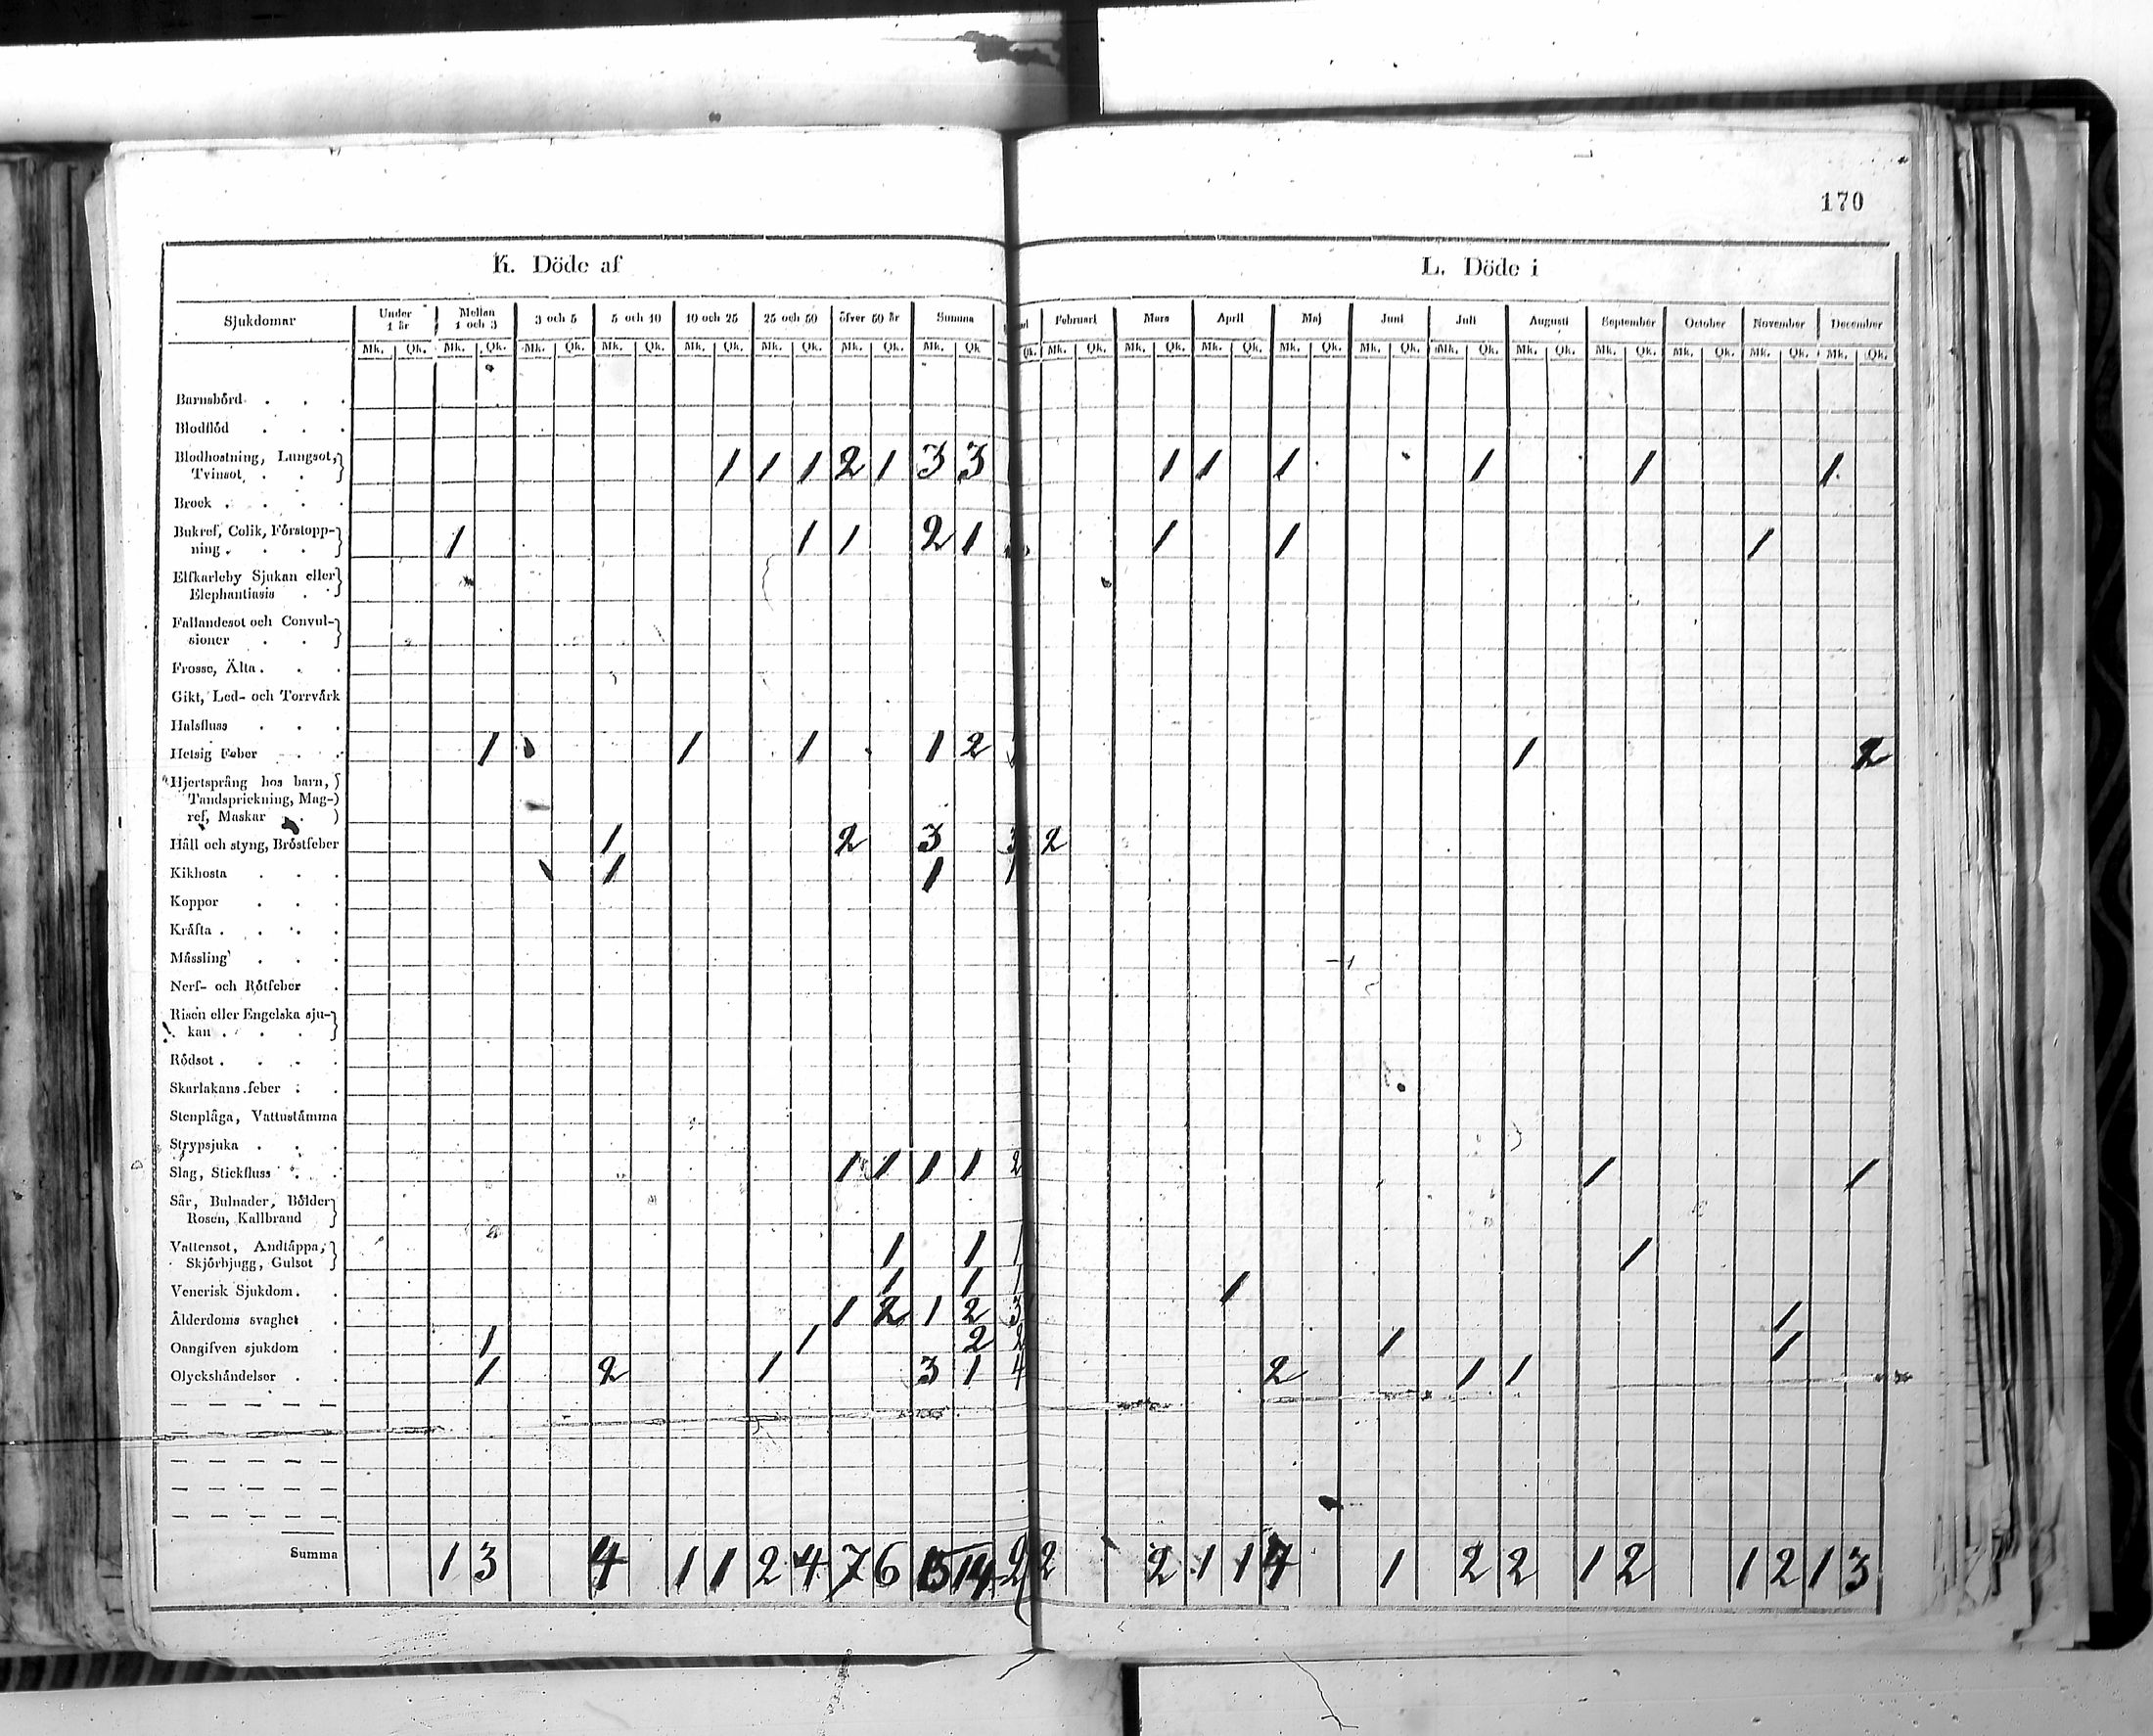 170
K. Döde af
L. Döde i
Sjukdomar Under 1 år Mellan 1 och 3 3 och 5 5 och 10 10 och 25 25 och 50 öfver 50 år Summa Februari Mars April Maj Juni Juli Augusti September October November December
Mk. Qk. Mk. Qk. Mk. Qk. Mk. Qk. Mk. Qk. Mk. Qk. Mk. Qk. Mk. Qk Qk. Mk. Qk. Mk. Qk. Mk. Qk. Mk. Qk. Mk. Qk. Mk. Qk. Mk. Qk. Mk. Qk. Mk. Qk. Mk. Qk. Mk. Qk.
Barnsbörd
Blodflöd
Blodhostning, Lungsot,
Tvinsot 1 1 1 2 1 3 3 1 1 1 1 1 1
Brock
Bukref, Colik, Förstopp-
ning 1 1 1 2 1 1 1 1
Elfkarleby Sjukan eller
Elephantiasis
Fallandesot och Convul-
sioner
Frossa, Älta
Gikt, Led- och Torrvärk
Halsfluss
Hetsig Feber 1 1 1 1 2 1 2
Hjertsprång hos barn,
Tandsprickning, Mag-
ref, Maskar
Håll och styng, Bröstfeber 1 2 3 3 2
Kikhosta 1 1 1
Koppor
Kräfta
Mässling
Nerf- och Rötfeber
Risen eller Engelska sju-
kan
Rödsot
Skarlakans feber
Stenplåga, Vattustämma
Strypsjuka
Slag, Stickfluss 1 1 1 1 2 1 1
Sår, Bulnader, Bölder
Rosen, Kallbrand
Vattensot, Andtäppa,
Skjörbjugg, Gulsot 1 1 1 1
Venerisk Sjukdom 1 1 1 1
Ålderdoms svaghet 1 2 1 2 3 1
Oangifven sjukdom 1 1 2 2 1 1
Olyckshändelser 1 2 1 3 1 4 2 1 1
Summa 1 3 4 1 1 2 4 7 6 15 14 2 2 1 1 4 1 2 2 1 2 1 2 1 3